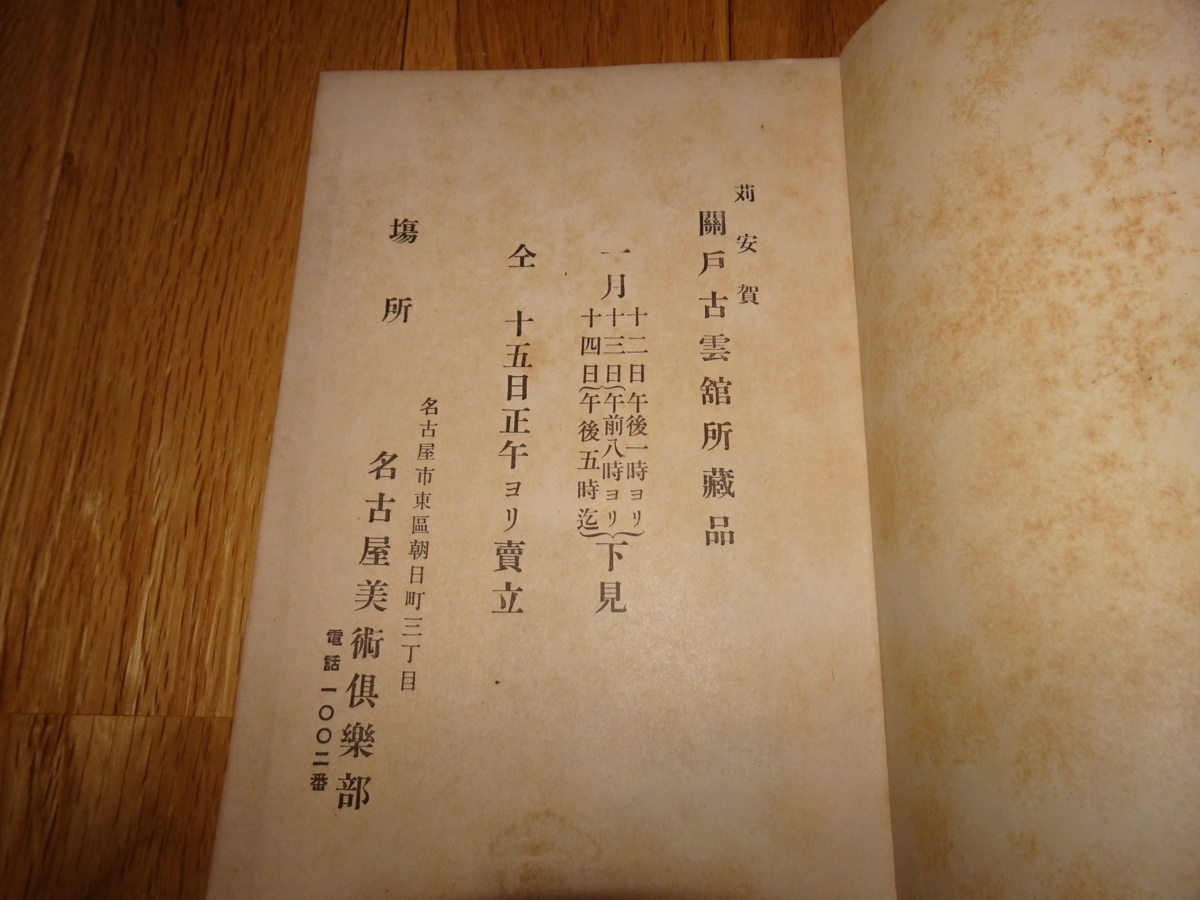 苅安賀
關戶古雲舘所藏品
一月
十二日午後一時ヨリ
十三日午前八時ヨリ
十四日午後五時迄
下見
仝 十五日正午ヨリ賣立
塲所
名古屋市東區朝日町三丁目
名古屋美術俱樂部
電話一〇〇二番